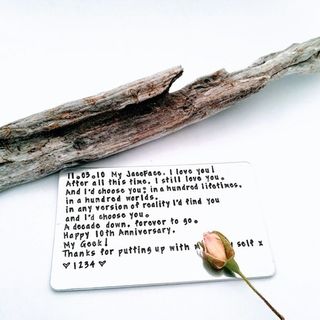 11.05.10 My JaceFace. I love you!
After all this time, I still love you.
And I'd choose you; in a hundred lifetimes,
in a hundred worlds,
in any version of reality I'd find you
and I'd choose you.
A decade down, forever to go.
Happy 10th Anniversary.
My Geek!
Thanks for putting up with self x
♡1234♡